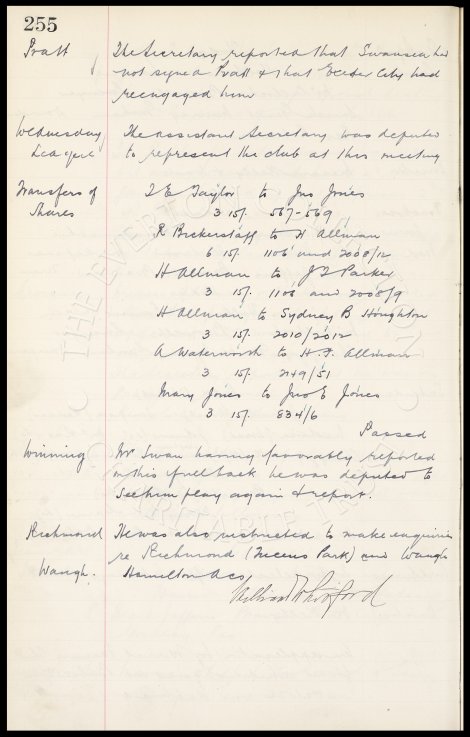 255
Pratt The Secretary reported that Swansea had
not signed Pratt & that Exeter City had
reengaged him
Wednesday The assistant Secretary was deputed
League to represent the club at this meeting
Transfers of J E Taylor to Jno Jones
Shares 3 15/. 567-569
R Bickerstaff to H Allman
6 15/. 1106 and 2008/12
H Allman to J Parker
3 15/. 1106 and 2008/9
H Allman to Sydney B Houghton
3 15/. 2010/2012
A Waterworth to H. J. Allman
3 15/. 2149/51
Mary Jones to Jno E Jones
3 15/. 834/6
Passed
Winning Mr Swan having favorably reported
on this fullback he was deputed to
see him play again & report.
Richmond He was also instructed to make enquiries
re Richmond (Queens Park) and Waugh
Waugh. Hamilton Acs
THE EVERTON
CHARITABLE TRUST